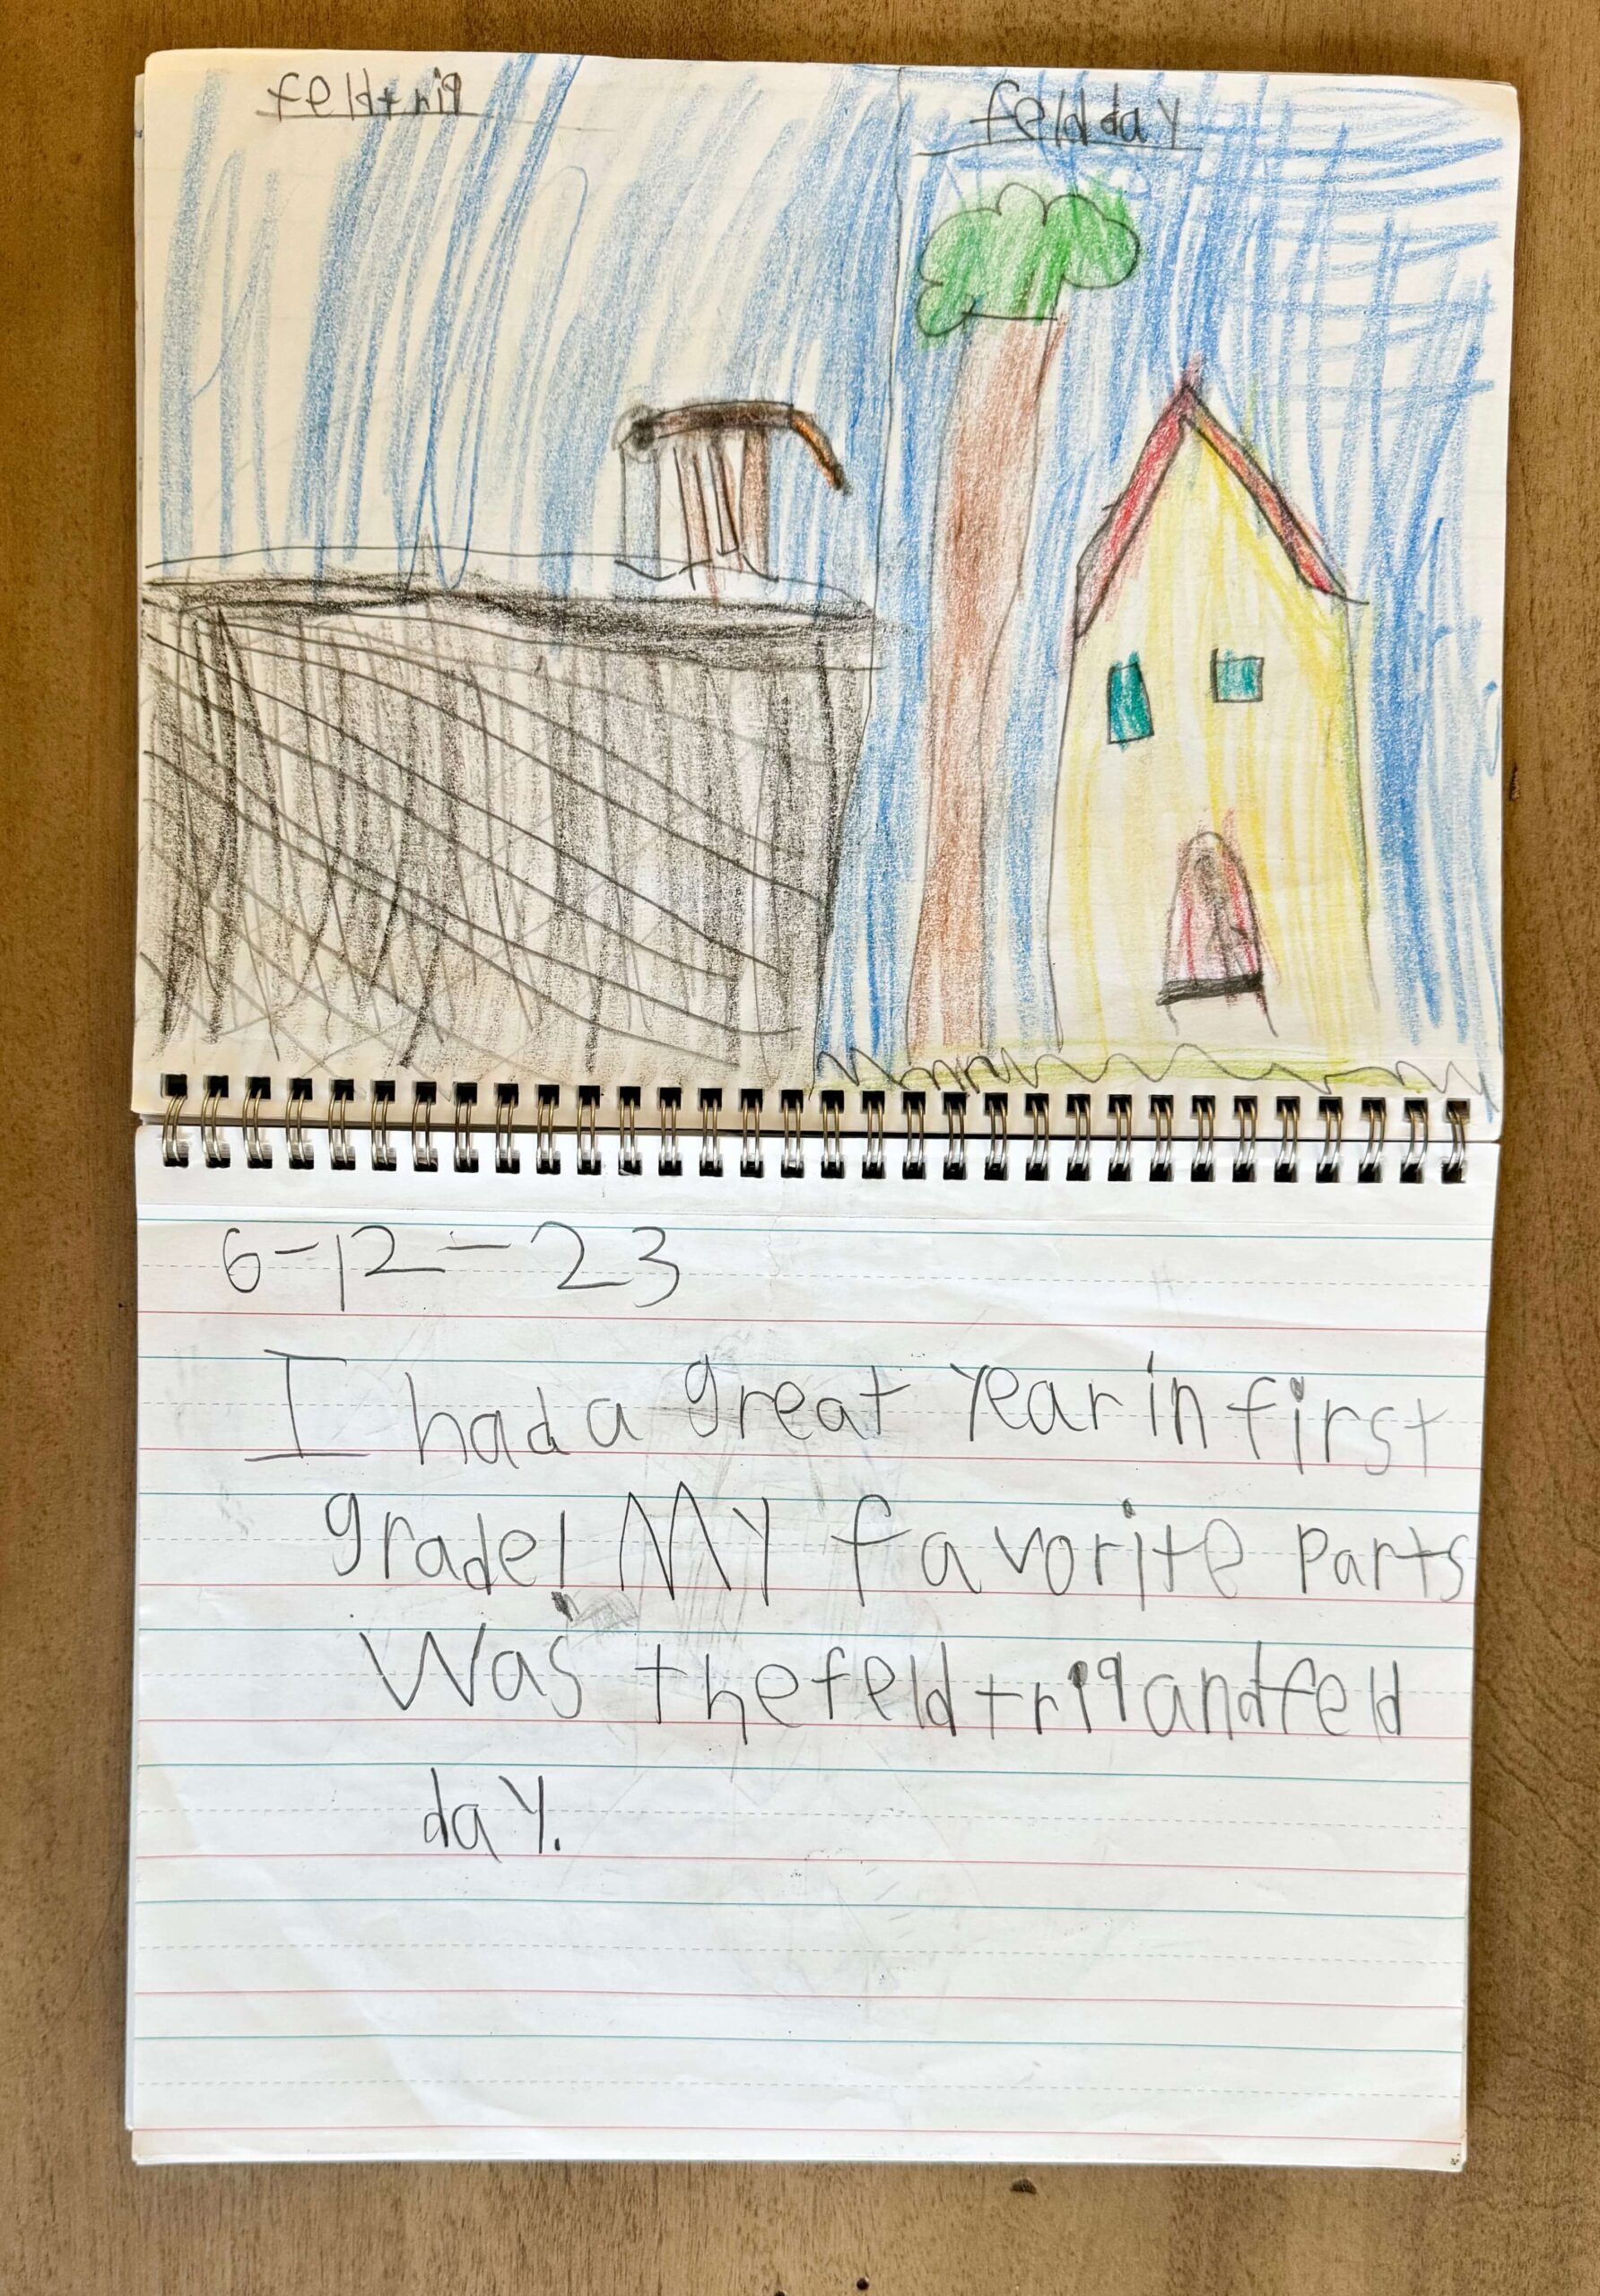 feld trip
feld day
6-12-23
I had a great year in first
grade! My favorite parts
was the feld trip and feld
day.